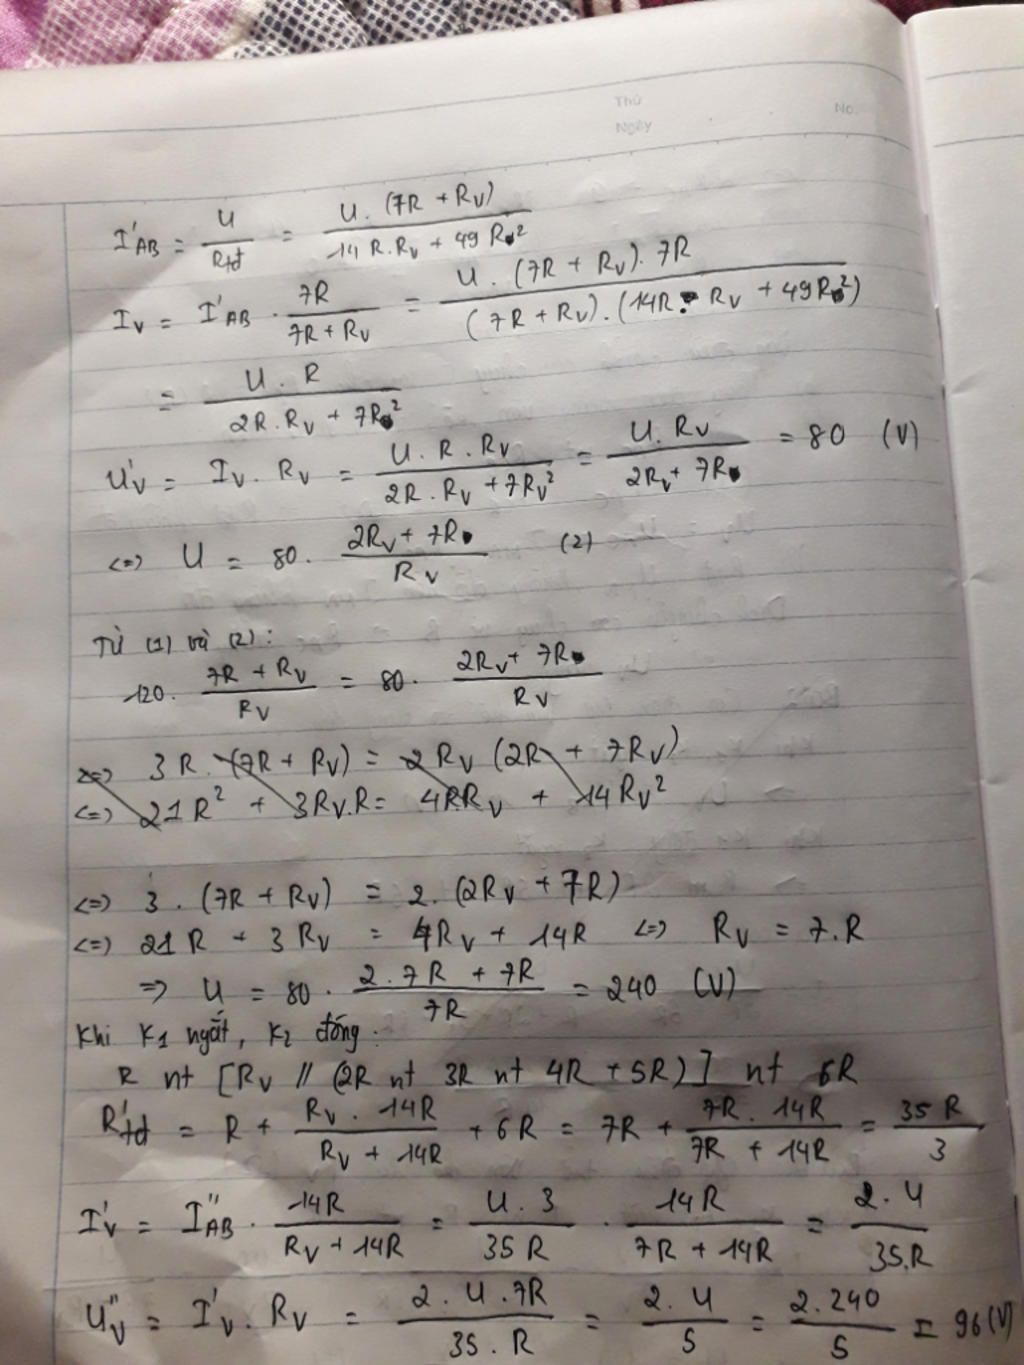 Thứ
No.
Ngày
I'AB = U/Rtđ = U. (7R + RV)/(14R.RV + 49R²)
IV = I'AB . 7R/(7R + RV) = U. (7R + RV). 7R/((7R + RV). (14R. RV + 49R²))
= U. R/(2R. RV + 7R²)
U'V = IV. RV = U. R. RV/(2R. RV + 7RV²) = U. RV/(2RV + 7R) = 80 (V)
<=> U = 80. (2RV + 7R)/RV (2)
Từ (1) và (2):
120. (7R + RV)/RV = 80. (2RV + 7R)/RV
<=> 3R. (7R + RV) = 2RV (2R + 7RV)
<=> 21R² + 3RV.R = 4RRV + 14RV²
<=> 3. (7R + RV) = 2. (2RV + 7R)
<=> 21R + 3RV = 4RV + 14R <=> RV = 7.R
=> U = 80. (2.7R + 7R)/7R = 240 (V)
Khi K1 ngắt, K2 đóng:
R nt [RV // (2R nt 3R nt 4R + 5R)] nt 6R
R'tđ = R + RV. 14R/(RV + 14R) + 6R = 7R + 7R. 14R/(7R + 14R) = 35R/3
I'V = I''AB. 14R/(RV + 14R) = U. 3/35R . 14R/(7R + 14R) = 2. U/35.R
U''V = I'V. RV = 2. U. 7R/35. R = 2. U/5 = 2. 240/5 = 96 (V)